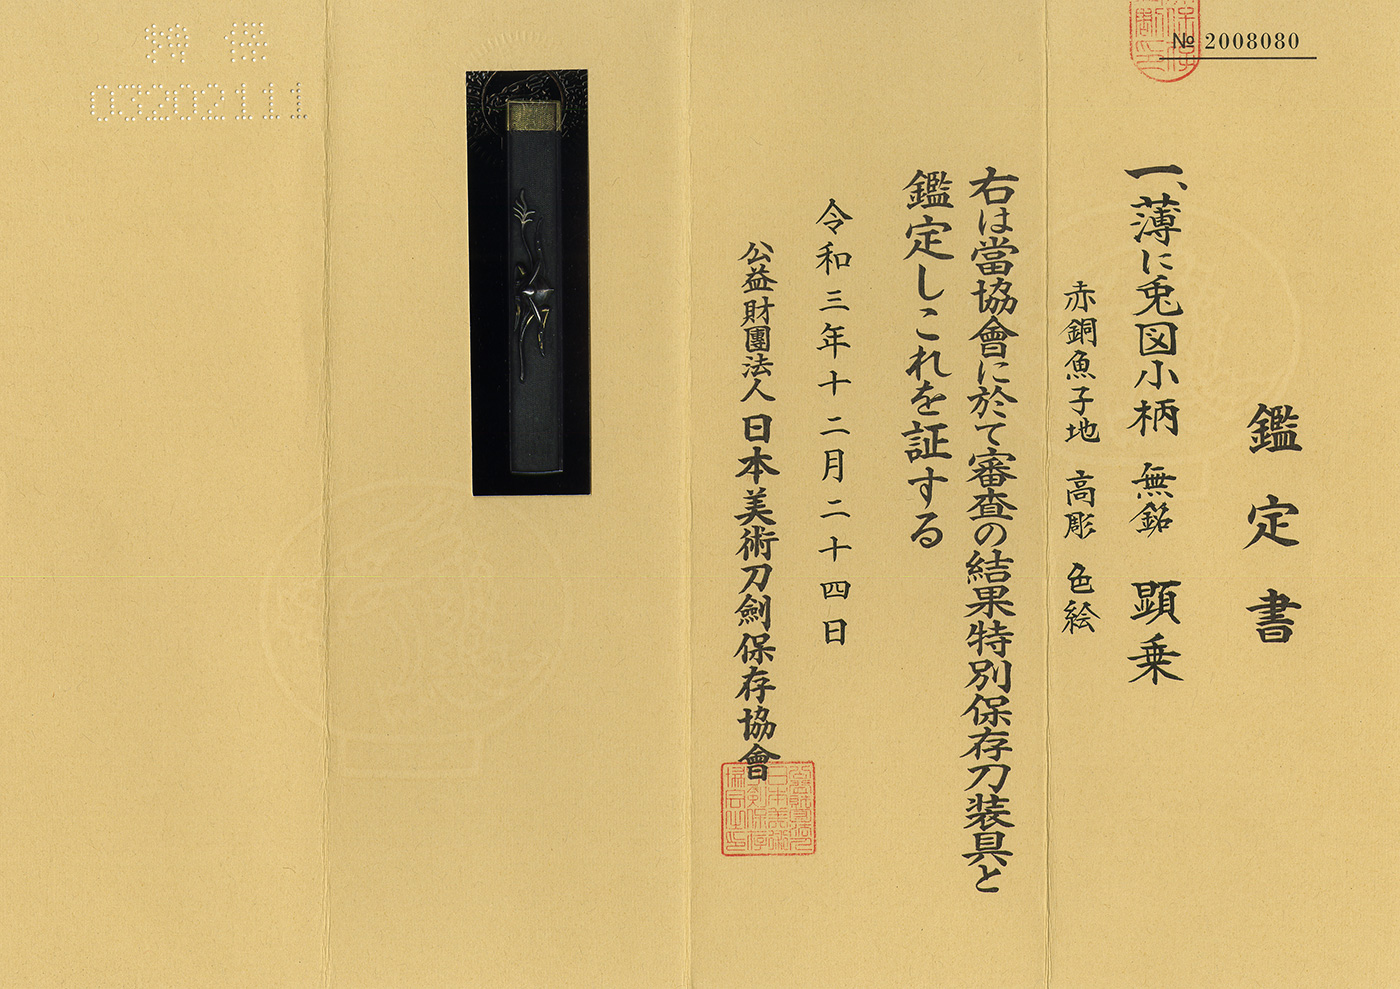 № 2008080
鑑定書
一、薄に兎図小柄 無銘 顕乗
赤銅魚子地 高彫 色絵
右は當協會に於て審査の結果特別保存刀装具と
鑑定しこれを証する
令和三年十二月二十四日
公益財團法人 日本美術刀劍保存協會
03202111